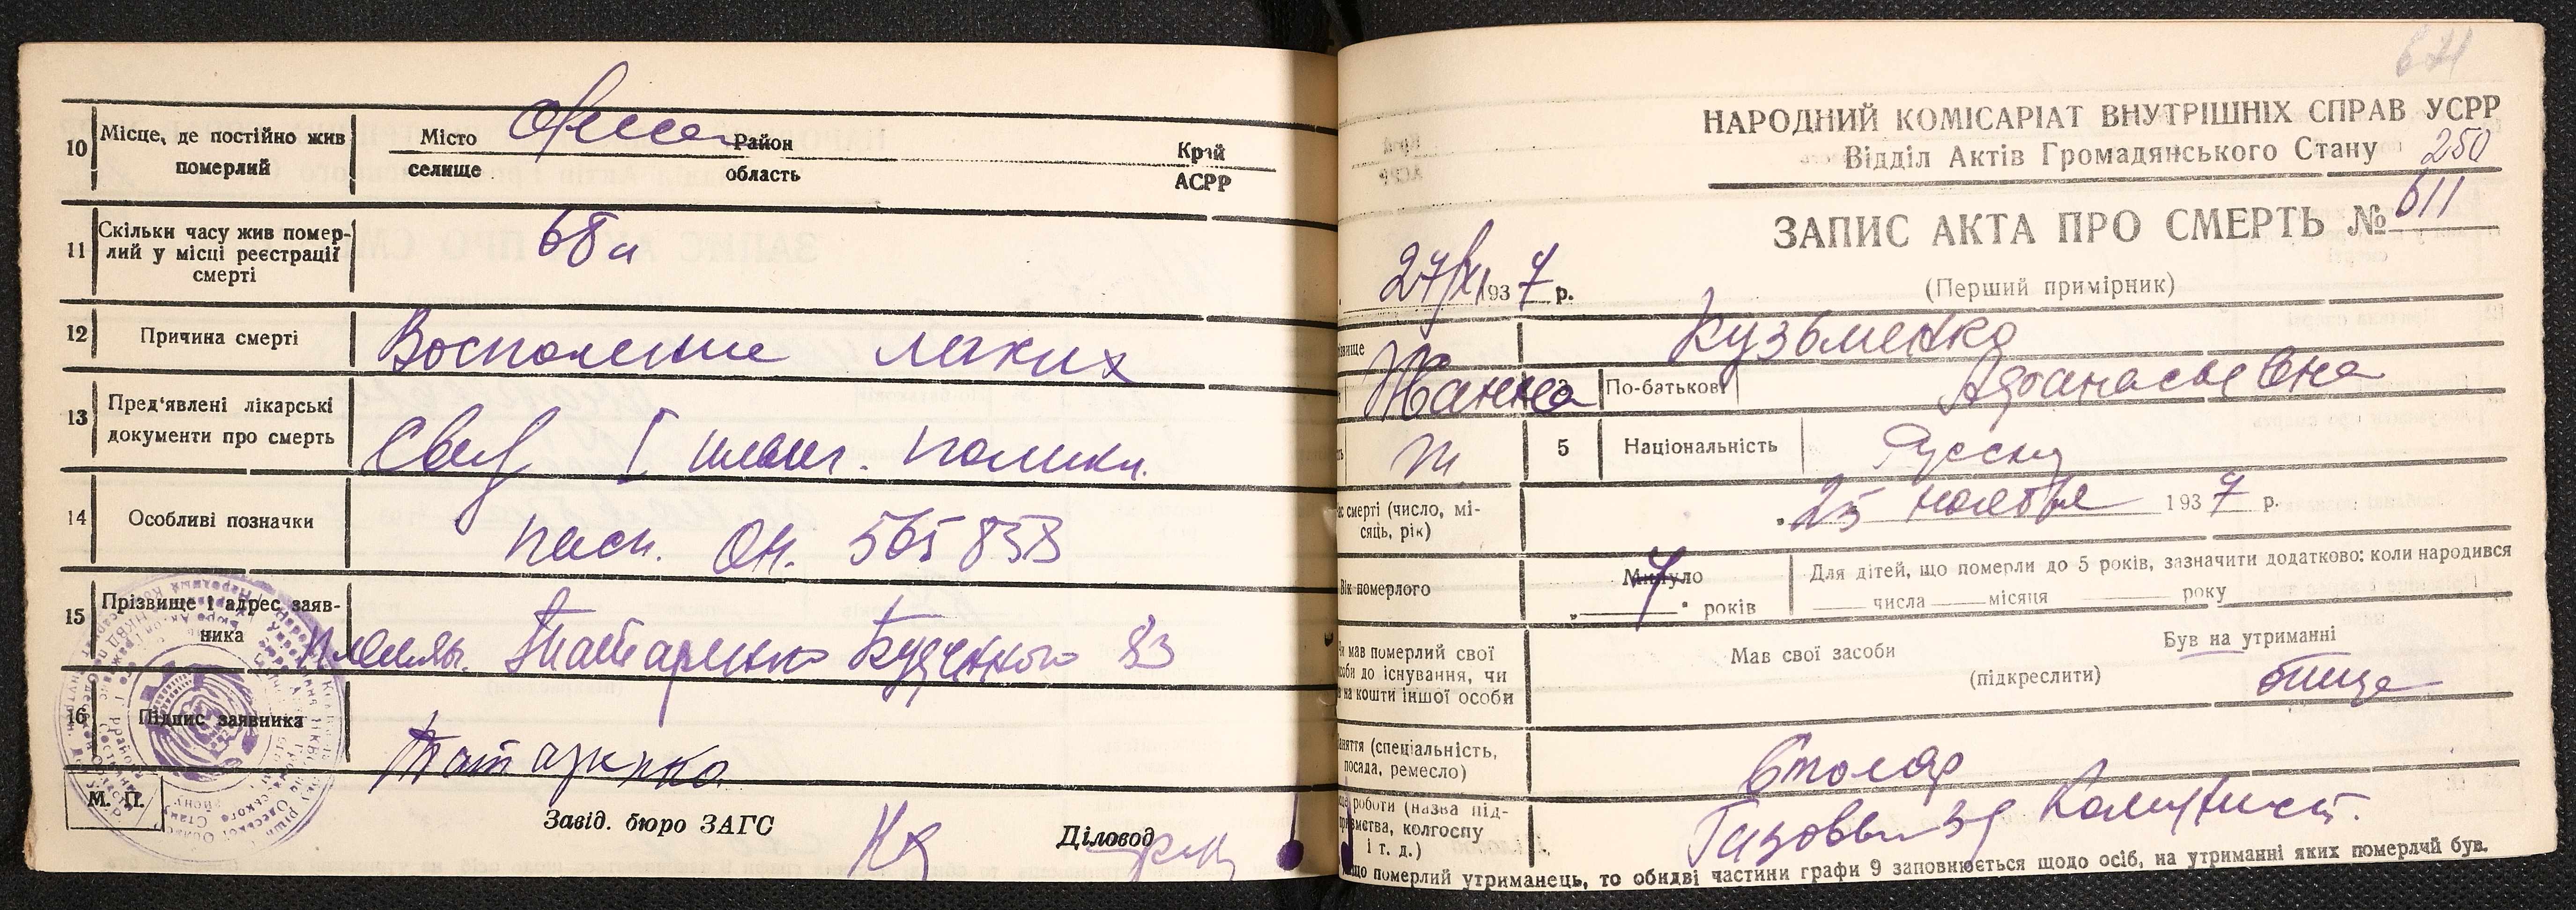 10
Місце, де постійно жив
померлий
Місто
Одесса
Район
Край
селище
область
АСРР
11
Скільки часу жив помер-
лий у місці реєстрації
смерті
12
Причина смерті
Воспаление легких
13
Пред'явлені лікарські
документи про смерть
I
14
Особливі позначки
пасп. ОН. 565858
15
Прізвище і адрес заяв-
ника
Татаренко Будённого 83
16
Підпис заявника
Татаренко
М. П.
Завід. бюро ЗАГС
Діловод
671
НАРОДНИЙ КОМІСАРІАТ ВНУТРІШНІХ СПРАВ УСРР
Відділ Актів Громадянського Стану
250
ЗАПИС АКТА ПРО СМЕРТЬ № 611
27/XI 1937 р.
(Перший примірник)
звище
Кузьменко
Жанна
3
По-батькові
Афанасьевна
ж
5
Національність
Русск
ас смерті (число, мі-
сяць, рік)
25 ноября 1937 р.
Вік померлого
Минуло
7
років
Для дітей, що померли до 5 років, зазначити додатково: коли народився
числа місяця року
Чи мав померлий свої
засоби до існування, чи
на кошти іншої особи
Мав свої засоби
Був на утриманні
(підкреслити)
отца
аняття (спеціальність,
посада, ремесло)
Столяр
роботи (назва під-
приємства, колгоспу
і т. д.)
Газовый
що померлий утриманець, то обидві частини графи 9 заповнюється щодо осіб, на утриманні яких померлий був.